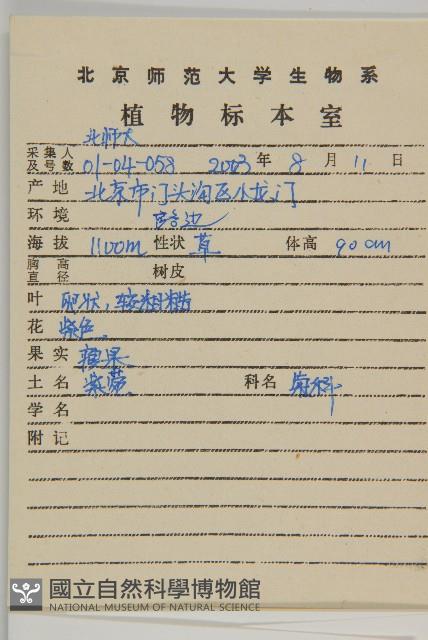 北京师范大学生物系
植物标本室
北师大
采集人及号数 01-04-058 2003年8月11日
产地 北京市门头沟区小龙门
环境 路边
海拔 1100m 性状 草 体高 90cm
胸高直径 树皮
叶 卵状，较粗糙
花 紫色。
果实
土名 紫 科名
学名
附记
國立自然科學博物館
NATIONAL MUSEUM OF NATURAL SCIENCE